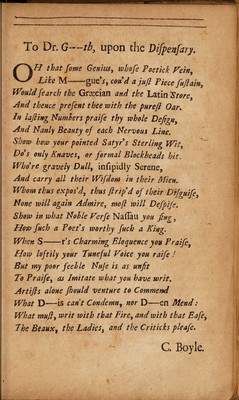 To Dr. G---th, upon the Dispensary.
OH that some Genius, whose Poetick Vein,
Like M---gue's, cou'd a just Piece sustain,
Would search the Græcian and the Latin Store,
And thence present thee with the purest Oar.
In lasting Numbers praise thy whole Design,
And Nanly Beauty of each Nervous Line.
Show how your pointed Satyr's Sterling Wit,
Do's only Knaves, or formal Blockheads hit.
Who're gravely Dull, insipidly Serene,
And carry all their Wisdom in their Mien.
Whom thus expos'd, thus strip'd of their Disguise,
None will again Admire, most will Despise.
Show in what Noble Verse Nassau you sing,
How such a Poet's worthy such a King.
When S---r's Charming Eloquence you Praise,
How loftily your Tuneful Voice you raise!
But my poor feeble Muse is as unfit
To Praise, as Imitate what you have writ.
Artists alone should venture to Commend
What D---is can't Condemn, nor D---en Mend:
What must, writ with that Fire, and with that Ease,
The Beaux, the Ladies, and the Criticks please.
C. Boyle.